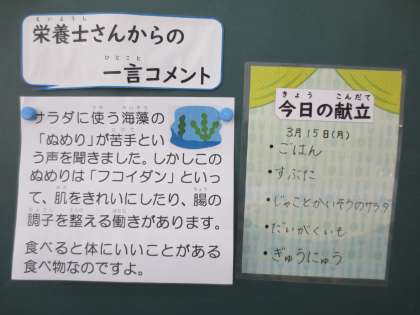 えいようし
栄養士さんからの
ひとこと
一言コメント
サラダに使う海藻の
「ぬめり」が苦手とい
う声を聞きました。しかしこの
ぬめりは「フコイダン」といっ
て、肌をきれいにしたり、腸の
調子を整える働きがあります。
食べると体にいいことがある
食べ物なのですよ。
きょう こんだて
今日の献立
3月15日(月)
・ごはん
・すぶた
・じゃことかいそうのサラダ
・だいがくいも
・ぎゅうにゅう